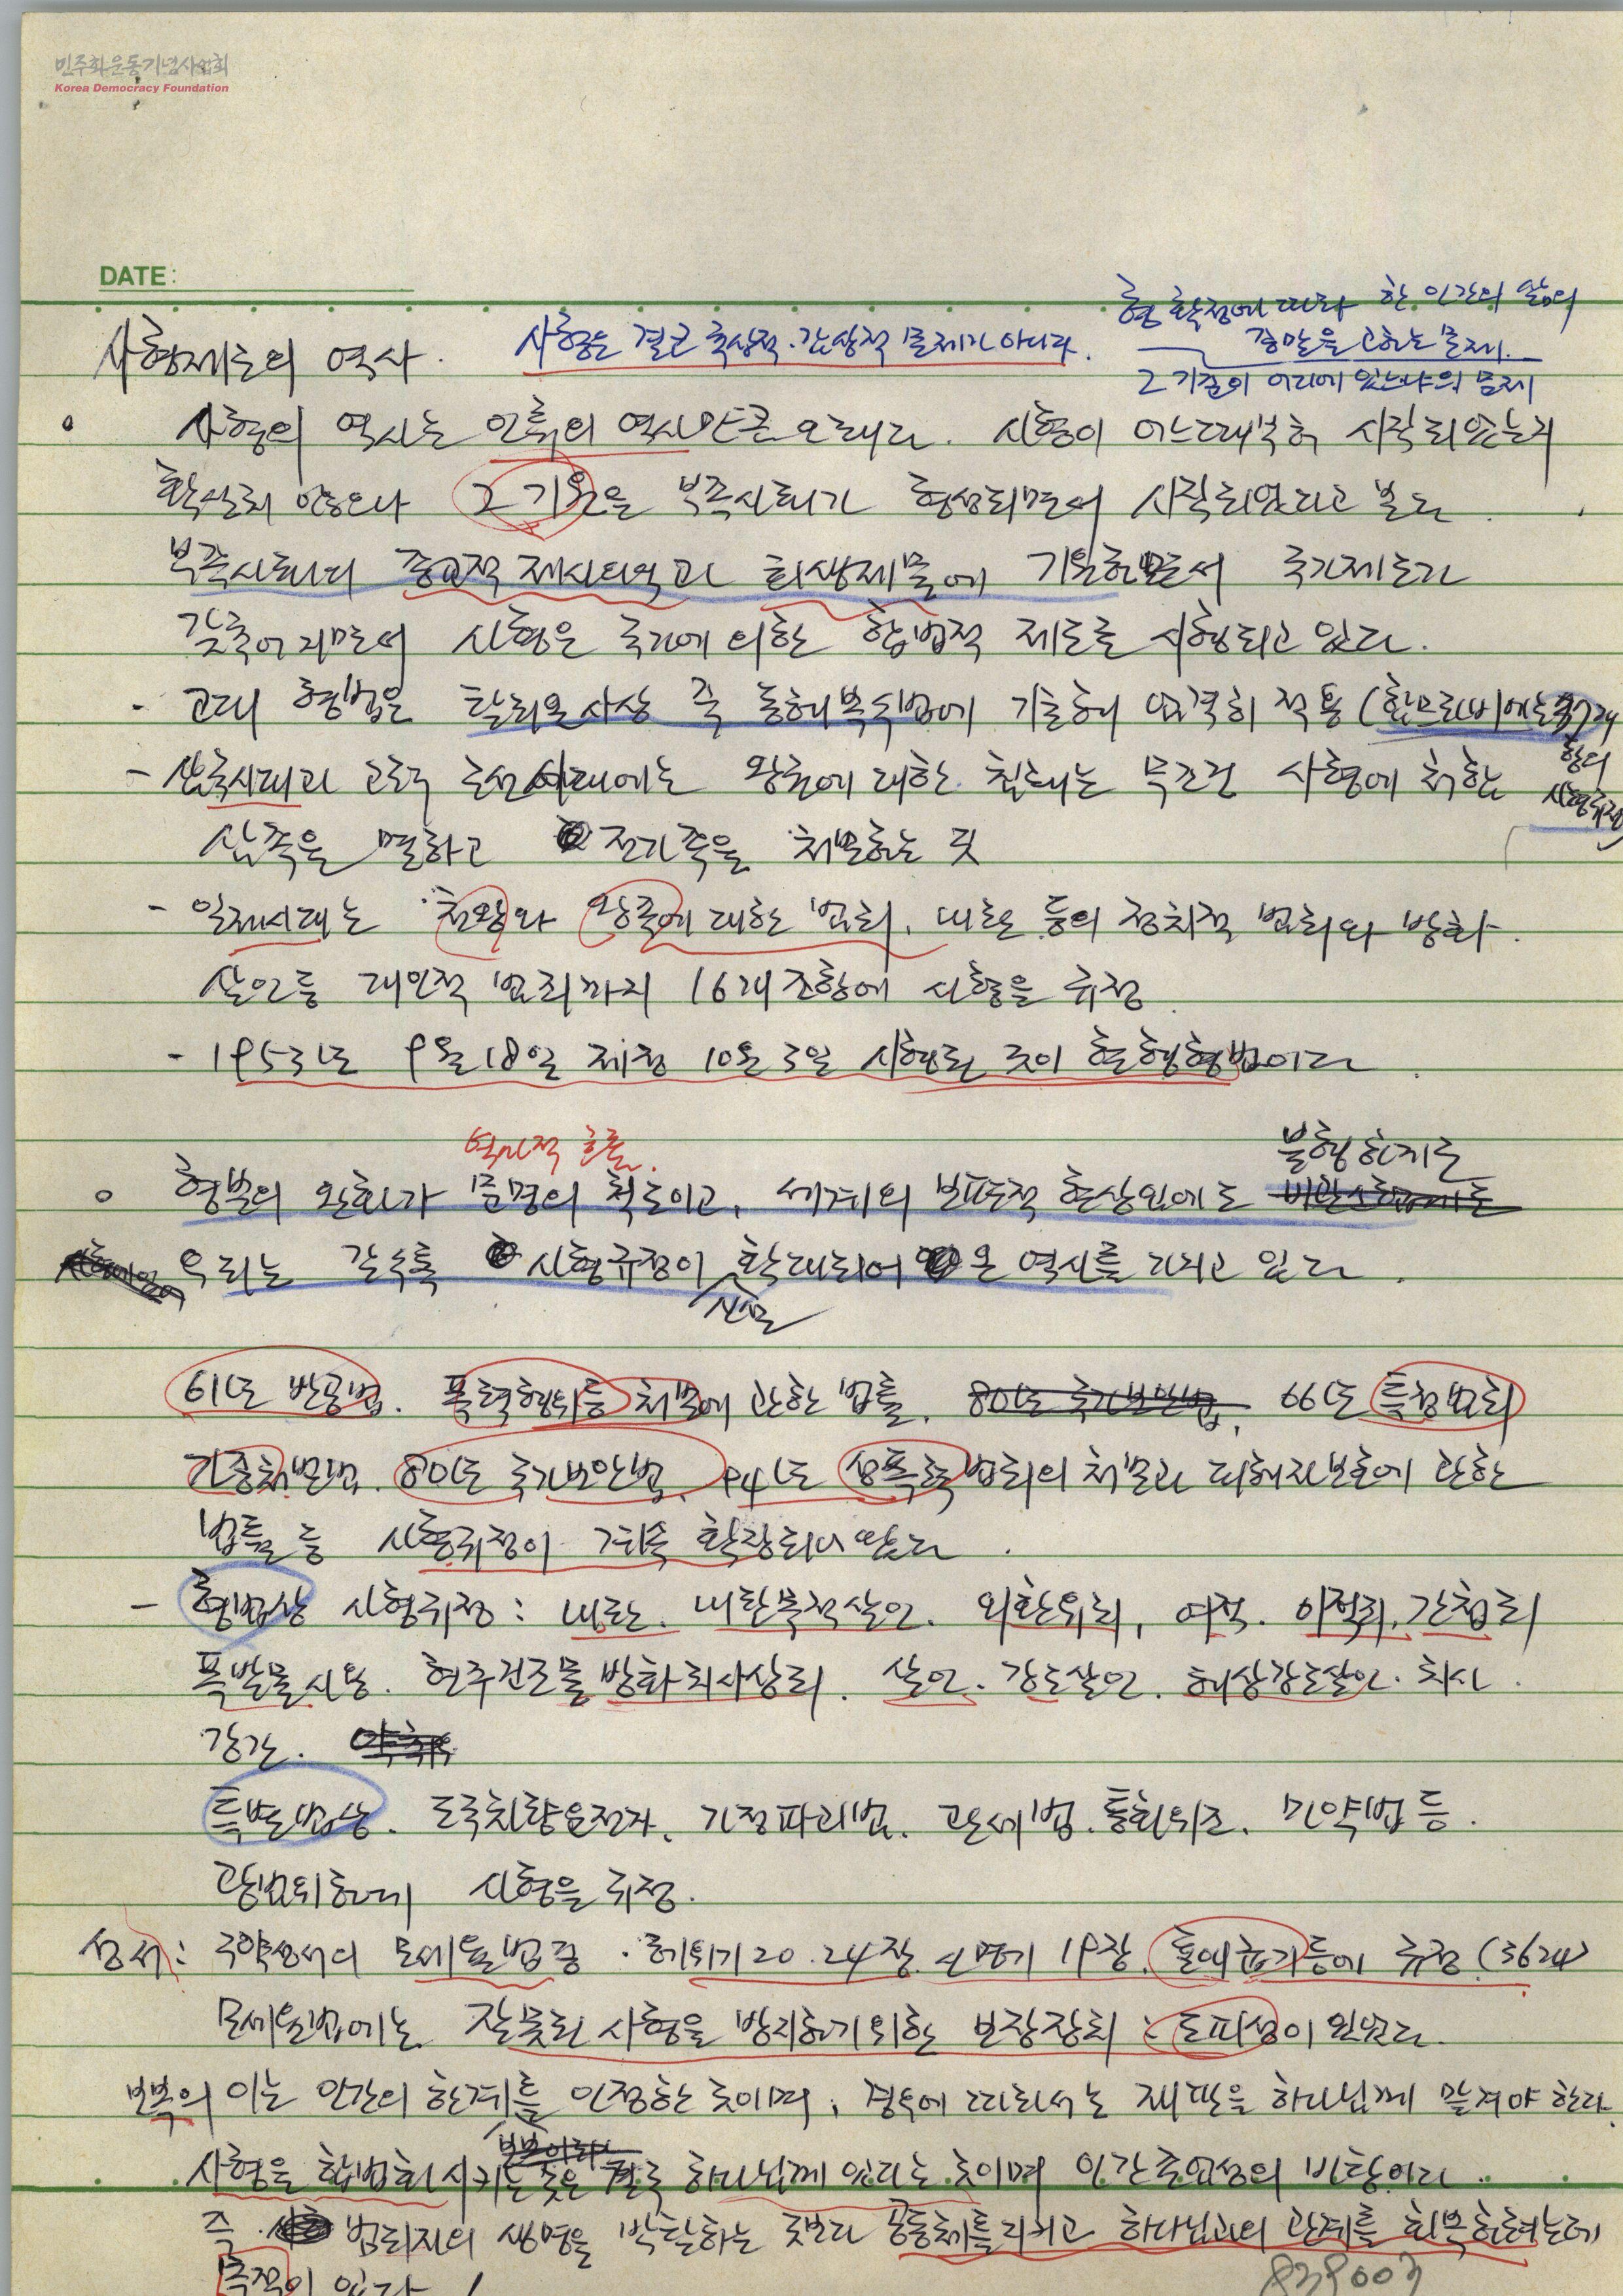 민주화운동기념사업회
Korea Democracy Foundation
DATE:
형 확정에 따라 한 인간의 삶의
종말을 고하는 문제.
그 기준이 어디에 있느냐의 문제
사형제도의 역사.
사형은 결코 추상적·감상적 문제가 아니다.
사형의 역사는 인류의 역사만큼 오래다. 사형이 어느때부터 시작되었는지
확실치 않으나 그 기원은 부족사회가 형성되면서 시작되었다고 본다.
부족사회의 종교적 제사의식과 희생제물에 기원하면서 국가제도가
갖추어지면서 사형은 국가에 의한 합법적 제도로 시행되고 있다.
- 고대 형법은 탈리오사상 즉 동해복수법에 기초해 엄격히 적용 (함무라비에는 37개
항의
사형규정
- 삼국시대과 고려 조선시대에는 왕조에 대한 침해는 무조건 사형에 처함
삼족을 멸하고 전가족을 처벌하는 것
- 일제시대는 천왕와 왕족에 대한 범죄, 내란 등의 정치적 범죄와 방화.
살인등 개인적 범죄까지 16개 조항에 사형을 규정
- 1953년 9월 18일 제정 10월 3일 시행된 것이 현행형법이다.
역사적 흐름.
불행하게도
형벌의 완화가 문명의 척도이고, 세계의 보편적 현상임에도
우리는 갈수록 사형규정이 확대되어 온 역사를 가지고 있다.
신설
61년 반공법. 폭력행위등 처벌에 관한 법률. 80년 국가보안법, 66년 특정범죄
가중처벌법. 80년 국가보안법, 94년 성폭력범죄의 처벌과 피해자보호에 관한
법률 등 사형규정이 계속 확장되어 왔다.
- 형법상 사형규정: 내란. 내란목적살인. 외환유치, 여적. 이적죄, 간첩죄
폭발물사용. 현주건조물방화치사상죄. 살인. 강도살인. 해상강도살인. 치사.
강간.
특별법상. 도주차량운전자, 가정파괴범. 관세법. 통화위조. 마약법 등.
광범위하게 사형을 규정.
성서: 구약성서의 모세율법중. 레위기 20. 24장. 신명기 19장. 출애굽기등에 규정 (36개)
모세율법에는 잘못된 사형을 방지하기위한 보장장치: 도피성이 있었다.
보복의 이는 인간의 한계를 인정한 것이며, 경우에 따라서는 재판을 하나님께 맡겨야 한다.
사형을 합법화시키는 것은 결국 하나님께 있다는 것이며 인간존엄성의 바탕이다.
즉 범죄자의 생명을 박탈하는 것보다 공동체를 지키고 하나님과의 관계를 회복하려는데
목적이 있다!
839003